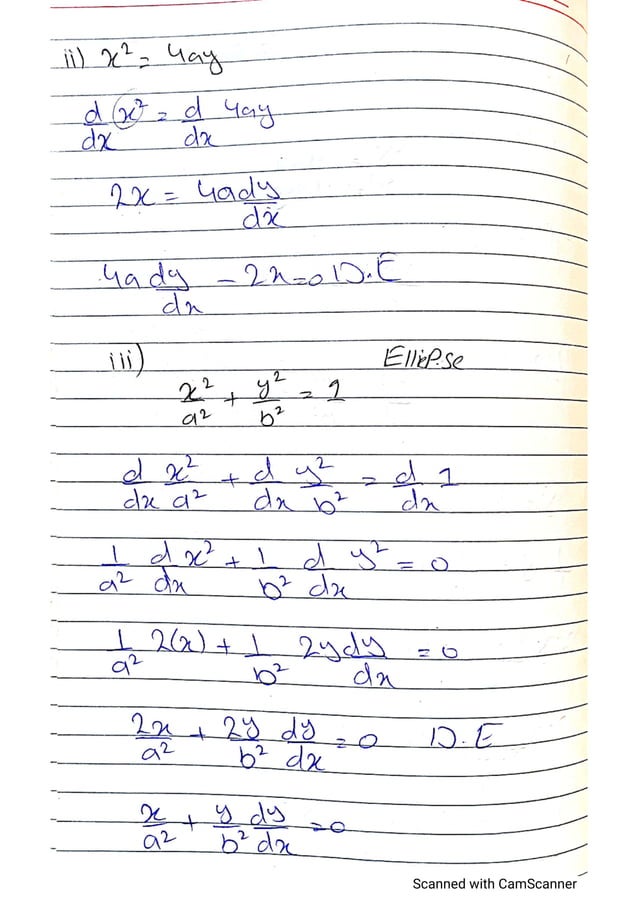 ii) x² = 4ay
d/dx x² = d/dx 4ay
2x = 4a dy/dx
4a dy/dx - 2x = 0 D.E
iii) Ellipse
x²/a² + y²/b² = 1
d/dx x²/a² + d/dx y²/b² = d/dx 1
1/a² d/dx x² + 1/b² d/dx y² = 0
1/a² 2(x) + 1/b² 2y dy/dx = 0
2x/a² + 2y/b² dy/dx = 0 D.E
x/a² + y/b² dy/dx = 0
Scanned with CamScanner